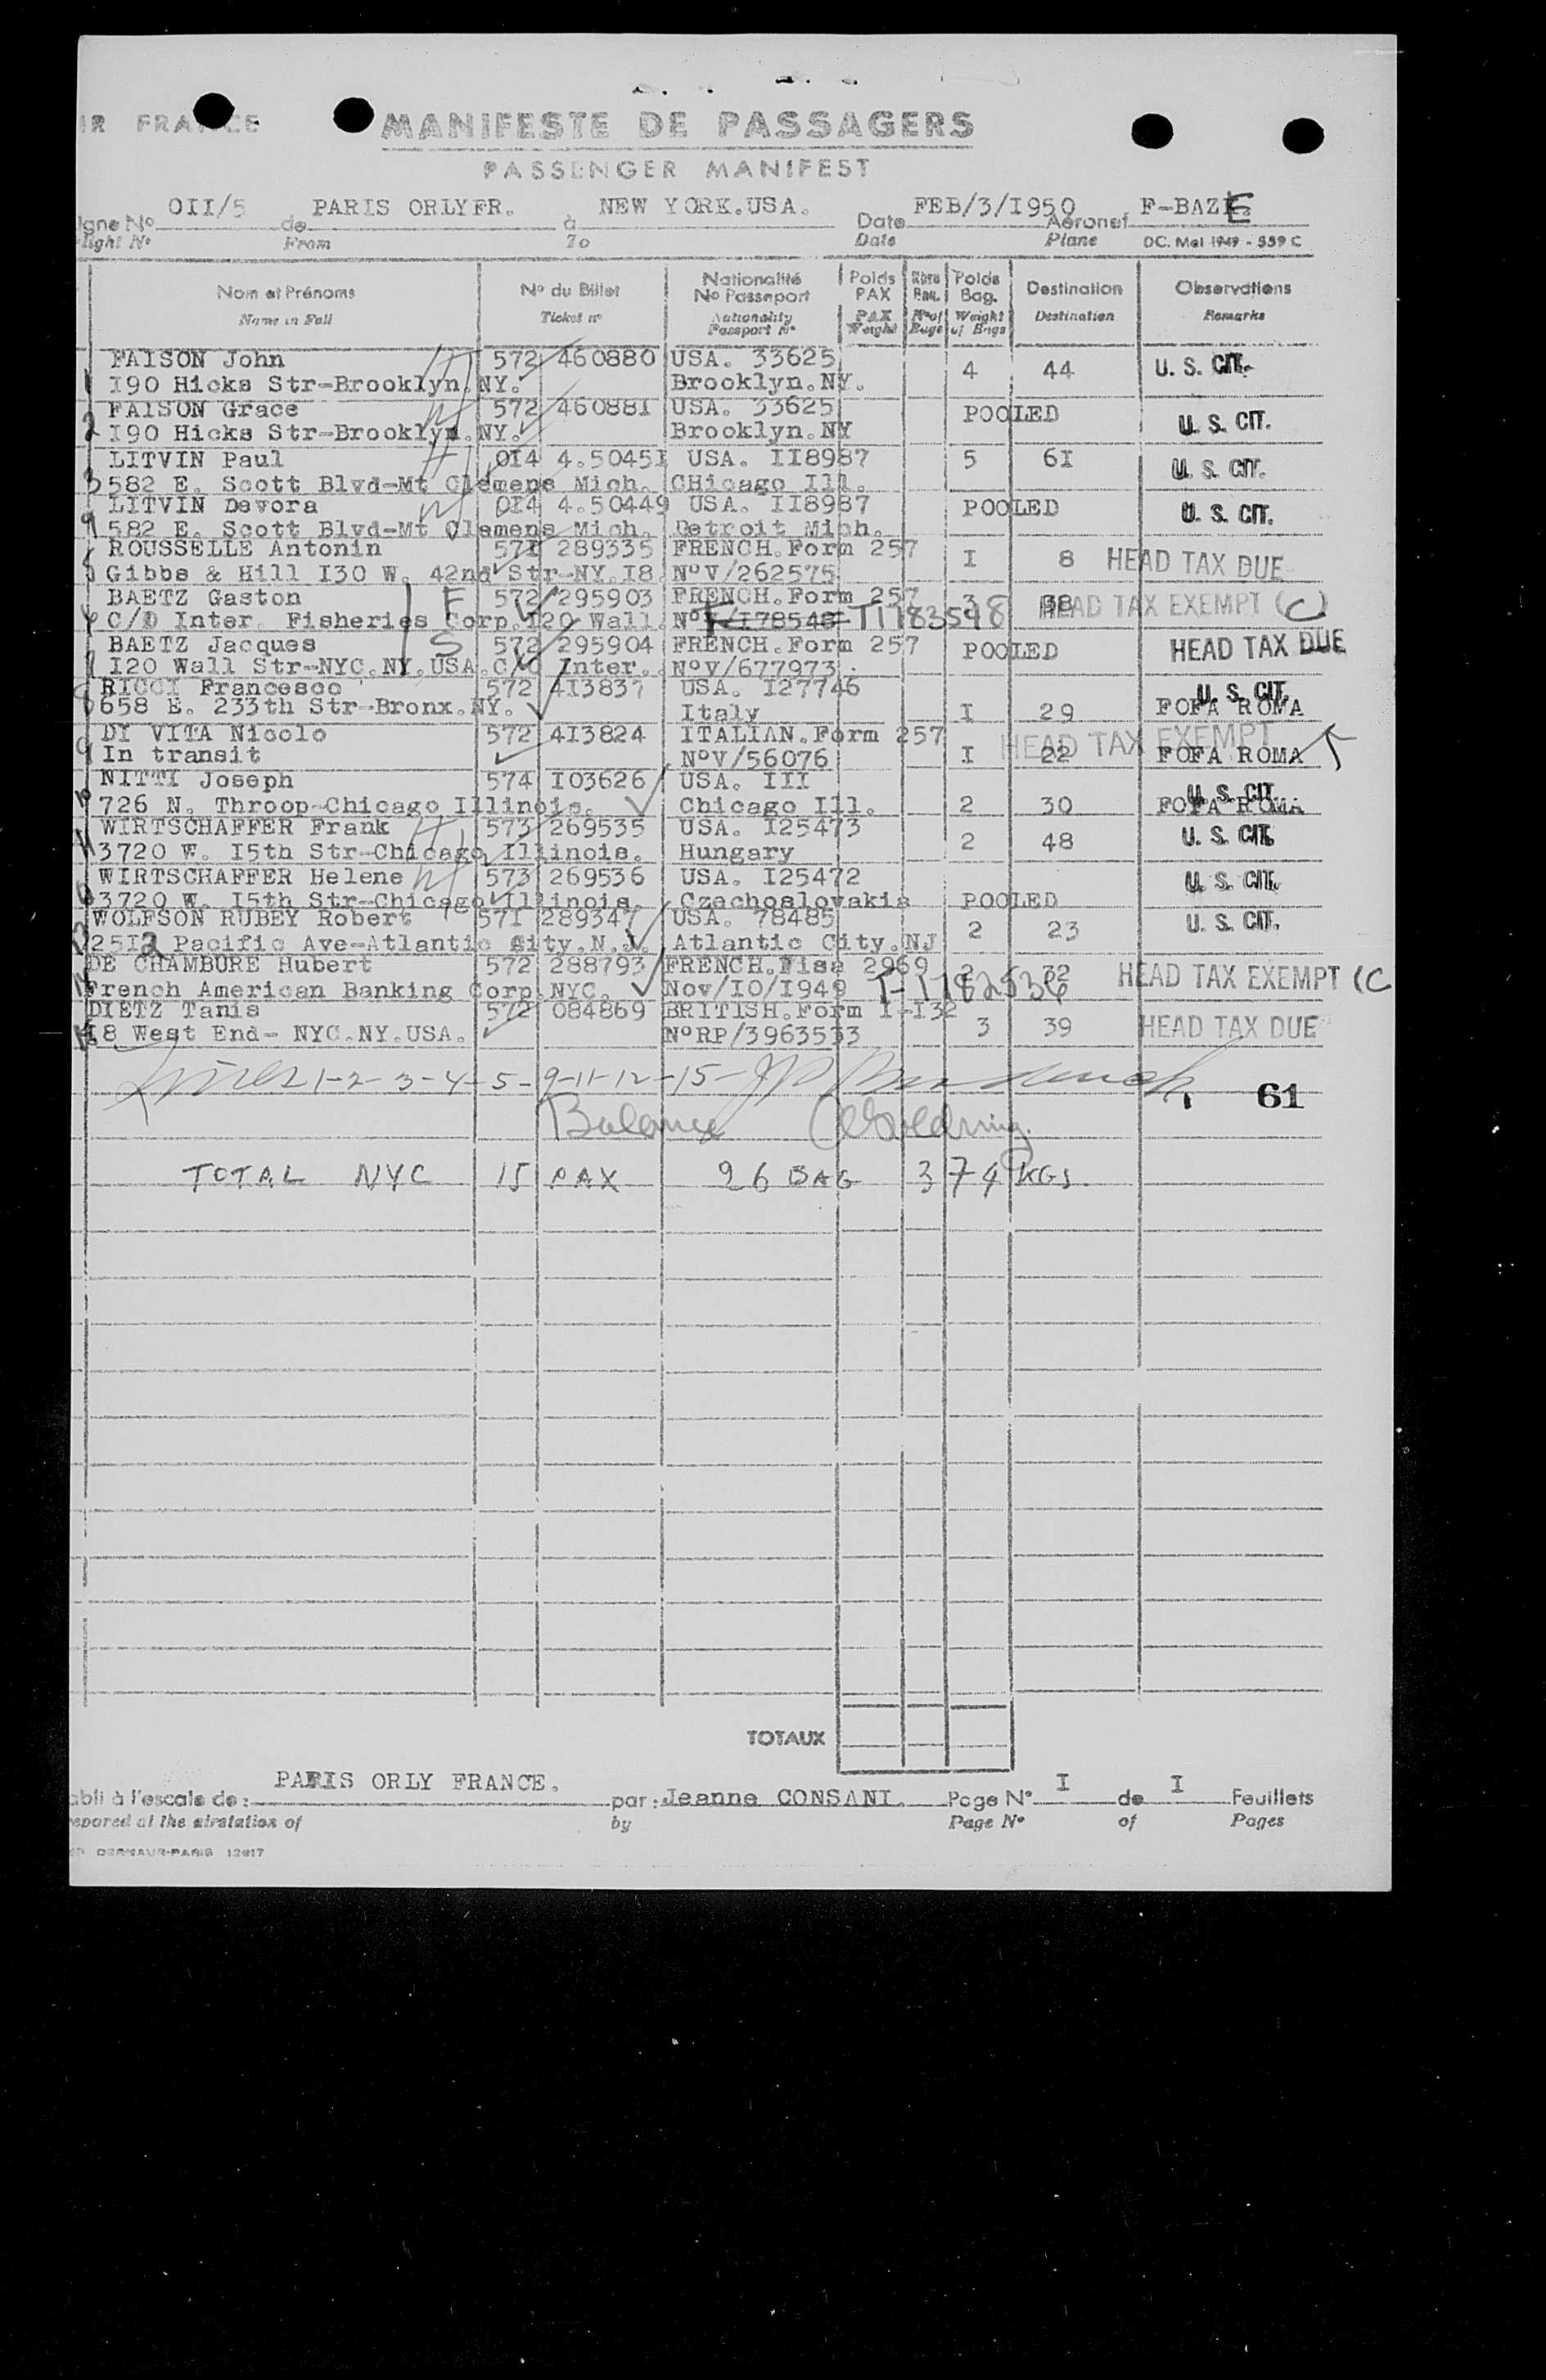 IR FRANCE
MANIFESTE DE PASSAGERS
PASSENGER MANIFEST
igne No OII/5 de PARIS ORLY FR. à NEW YORK.USA. Date FEB/3/I950 Aéronef F-BAZE
light No From To Date Plane DC. Mel 1949 - 559 C
Nom et Prénoms No du Billet Nationalité No Passeport Poids PAX Poids Bag. Destination Observations
Name in Full Ticket no Nationality Passport No PAX Weight No of Bags Weight of Bags Destination Remarks
FAISON John H 572 460880 USA. 33625 4 44 U. S. CIT.
1 I90 Hicks Str-Brooklyn.NY. Brooklyn.NY.
FAISON Grace W 572 460881 USA. 33625 POOLED U. S. CIT.
2 I90 Hicks Str-Brooklyn.NY. Brooklyn.NY
LITVIN Paul H OI4 4.5045I USA. II8987 5 6I U. S. CIT.
3 582 E. Scott Blvd-Mt Clemens Mich. CHicago Ill.
LITVIN Devora W OI4 4.50449 USA. II8987 POOLED U. S. CIT.
4 582 E. Scott Blvd-Mt Clemens Mich. Detroit Mich.
ROUSSELLE Antonin 57I 289335 FRENCH.Form 257 I 8 HEAD TAX DUE
5 Gibbs & Hill I30 W. 42nd Str-NY.I8 NoV/262575
BAETZ Gaston F 572 295903 FRENCH.Form 257 3 38 HEAD TAX EXEMPT (C)
6 C/O Inter. Fisheries Corp.I20 Wall. No V/I78548 T1183598
BAETZ Jacques S 572 295904 FRENCH.Form 257 POOLED HEAD TAX DUE
7 I20 Wall Str-NYC.NY.USA.C/O Inter. NoV/677973
RICCI Francesco 572 4I3837 USA. I27746 U. S. CIT.
8 658 E. 233th Str-Bronx.NY. Italy I 29 FOFA ROMA
DI VITA Nicolo 572 4I3824 ITALIAN.Form 257 HEAD TAX EXEMPT
9 In transit NoV/56076 I 22 FOFA ROMA
NITTI Joseph 574 I03626 USA. III U. S. CIT.
10 726 N. Throop-Chicago Illinois. Chicago Ill. 2 30 FOFA ROMA
WIRTSCHAFFER Frank H 573 269535 USA. I25473 2 48 U. S. CIT.
11 3720 W. I5th Str-Chicago Illinois. Hungary
WIRTSCHAFFER Helene W 573 269536 USA. I25472 U. S. CIT.
3720 W. I5th Str-Chicago Illinois. Czechoslovakia POOLED
WOLFSON RUBEY Robert 57I 289347 USA. 78485 2 23 U. S. CIT.
13 25I2 Pacific Ave-Atlantic City.N.J. Atlantic City.NJ
DE CHAMBURE Hubert 572 288793 FRENCH.Visa 2969 2 32 HEAD TAX EXEMPT (C
14 French American Banking Corp.NYC. Nov/IO/I949
DIETZ Tanis 572 084869 BRITISH.Form I-I32 3 39 HEAD TAX DUE
I8 West End- NYC.NY.USA. NoRP/3963533
Lines 1-2-3-4-5-9-11-12-15-
61
Balance
TOTAL NYC 15 PAX 26 BAG 374 KGS
TOTAUX
abli à l'escale de: PARIS ORLY FRANCE. par: Jeanne CONSANI. Page No I de I Feuillets
epared at the airstation of by Page No of Pages
DERMAUR-PARIS 12617